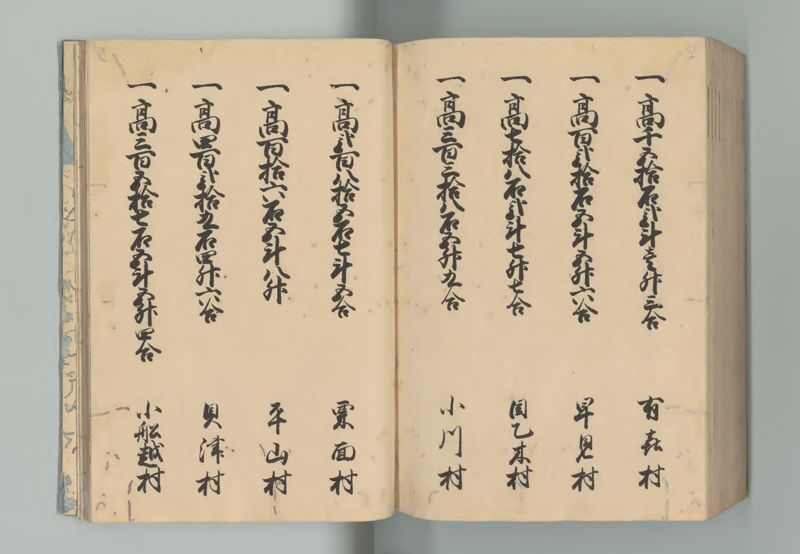 一高千五拾石弐斗壱升三合 有喜村
一高百弐拾石五斗五升六合 早見村
一高七拾八石弐斗七升七合 目乙木村
一高三百三拾八石五升九合 小川村
一高弐百八拾五石七斗五合 栗面村
一高百拾六石五斗八升 平山村
一高四百弐拾九石四升六合 貝津村
一高三百五拾七石五斗五升四合 小船越村